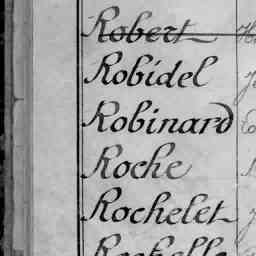 Robert
Robidel
Robinard
Roche
Rochelet